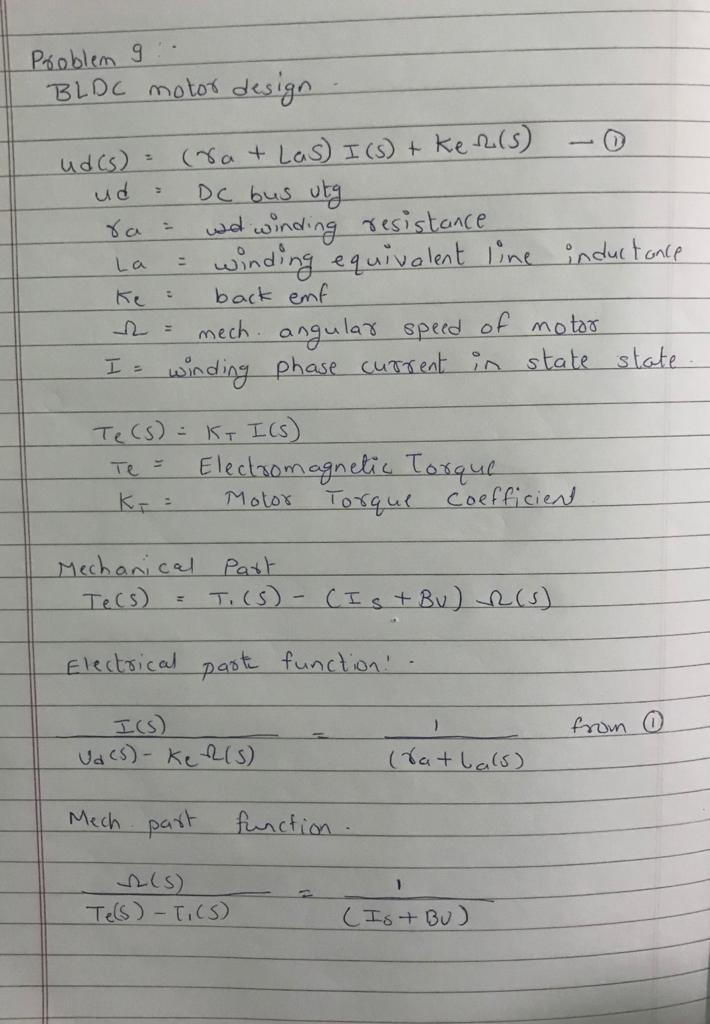 Problem 9 :-
BLDC motor design -
ud(s) = (ra + Las) I(s) + Ke Ω(s) — ①
ud = DC bus vtg
ra = winding resistance
La = winding equivalent line inductance
Ke = back emf
Ω = mech. angular speed of motor
I = winding phase current in state state.
Te(s) = KT I(s)
Te = Electromagnetic Torque
KT = Motor Torque coefficient
Mechanical Part
Te(s) = T1(s) - (Is + Bv) Ω(s)
Electrical part function! -
I(s) / Ud(s) - Ke Ω(s) = 1 / (ra + La(s) from ①
Mech. part function.
Ω(s) / Te(s) - T1(s) = 1 / (Is + Bv)